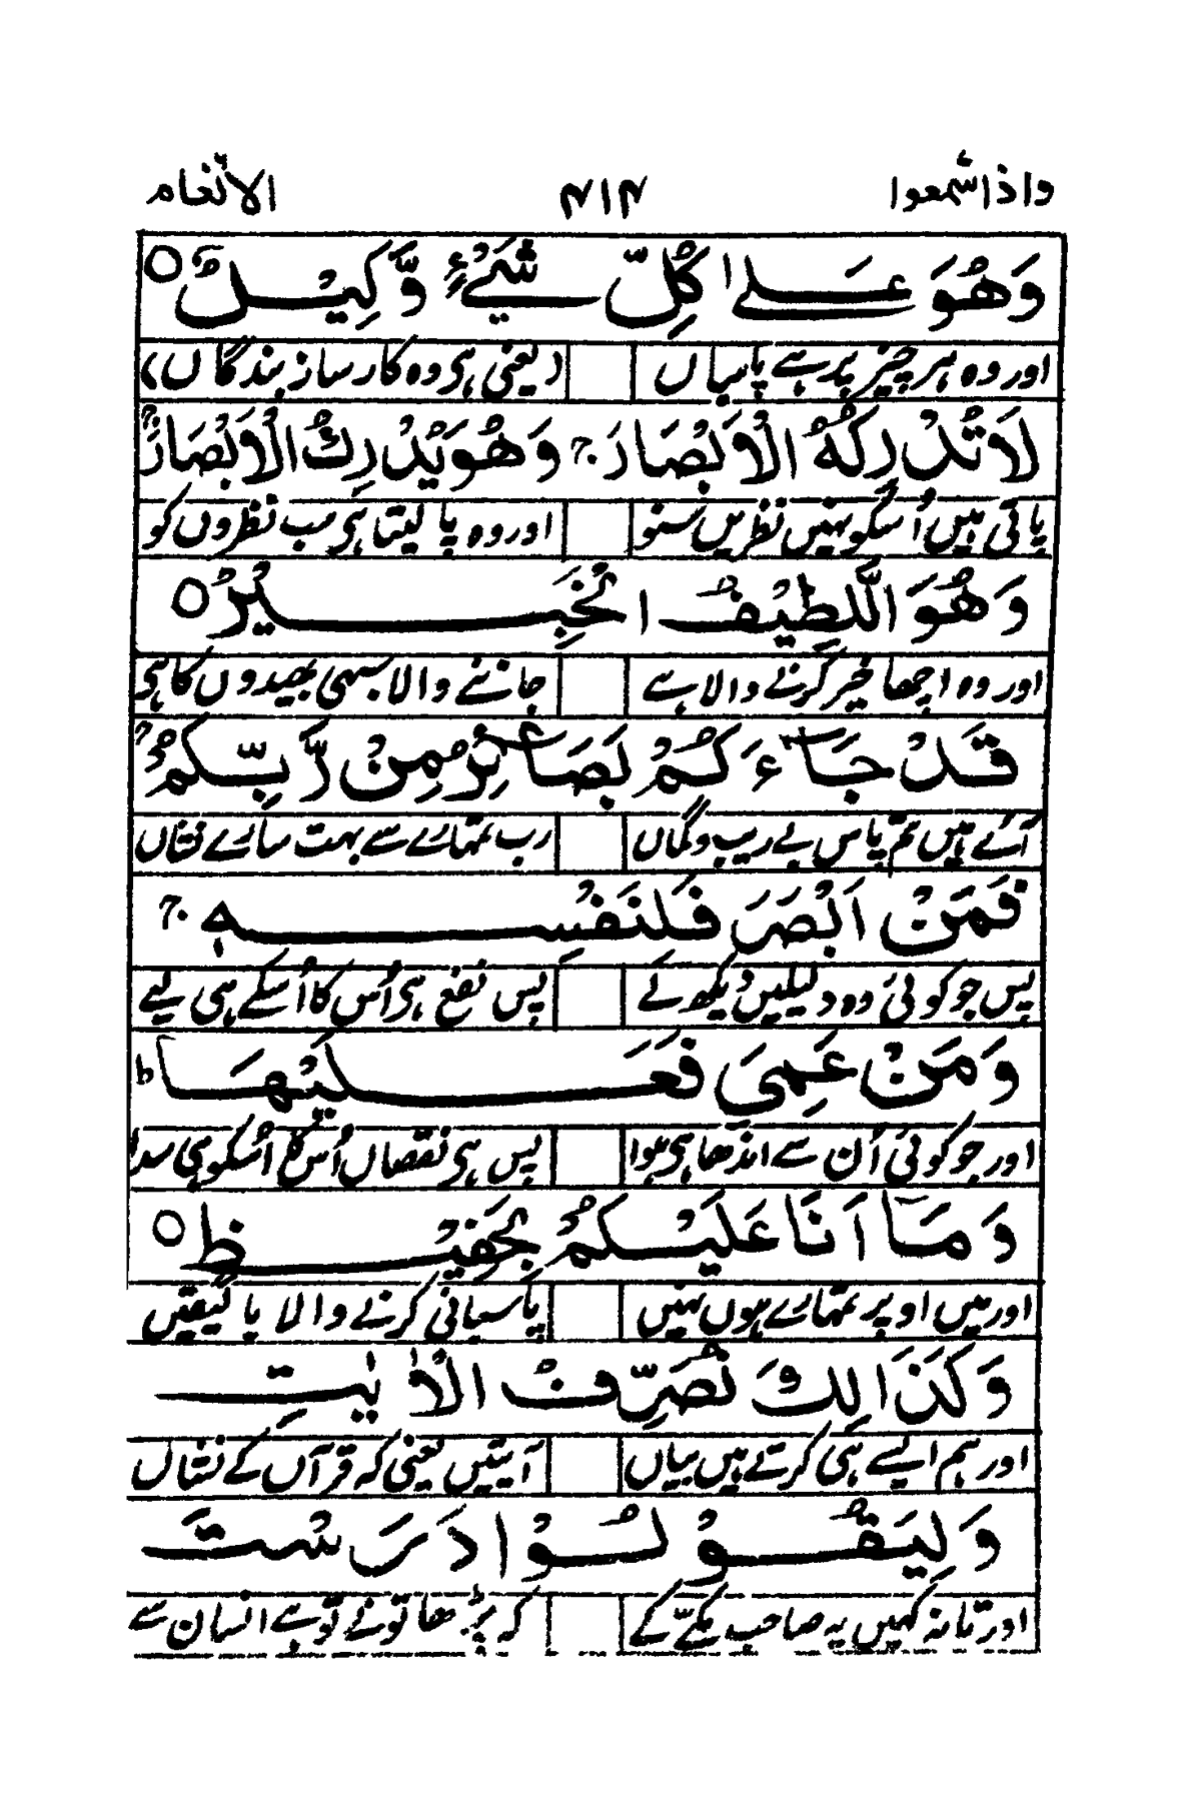 واذاسمعوا ۴۱۴ الانعام
وَهُوَ عَلٰی كُلِّ شَیْءٍ وَّكِیْلٌ ○
اور وہ ہر چیز پر ہے پاسباں (یعنی ہی وہ کارساز بندگاں)
لَا تُدْرِكُهُ الْاَبْصَارُ ۚ وَهُوَ یُدْرِكُ الْاَبْصَارَ ۚ
پاتی ہیں اُسکو نہیں نظریں سنو اور وہ پا لیتا ہی سب نظروں کو
وَهُوَ اللَّطِیْفُ الْخَبِیْرُ ○
اور وہ اچھا خیر کرنے والا ہے جاننے والا سبھی بھیدوں کا ہی
قَدْ جَآءَكُمْ بَصَآئِرُ مِنْ رَّبِّكُمْ ۚ
آئے ہیں تم پاس بے ریب و گماں رب تمہارے سے بہت سارے نشاں
فَمَنْ اَبْصَرَ فَلِنَفْسِهٖ ۚ
پس جو کوئی وہ دلیلیں دیکھ لے پس نفع ہی اُس کا اُسکے ہی لیے
وَمَنْ عَمِیَ فَعَلَیْهَا ؕ
اور جو کوئی اُن سے اندھا ہی ہوا پس ہی نقصاں اُس کا اُسکو ہی سدا
وَمَآ اَنَا عَلَیْكُمْ بِحَفِیْظٍ ○
اور میں اوپر تمہارے ہوں نہیں پاسبانی کرنے والا با یقیں
وَكَذٰلِكَ نُصَرِّفُ الْاٰیٰتِ
اور ہم ایسے ہی کرتے ہیں بیاں آیتیں یعنی کہ قرآں کے نشاں
وَلِیَقُوْلُوْا دَرَسْتَ
اور تا نہ کہیں یہ صاحب مکے کے کہ پڑھا تونے تو ہے انسان سے